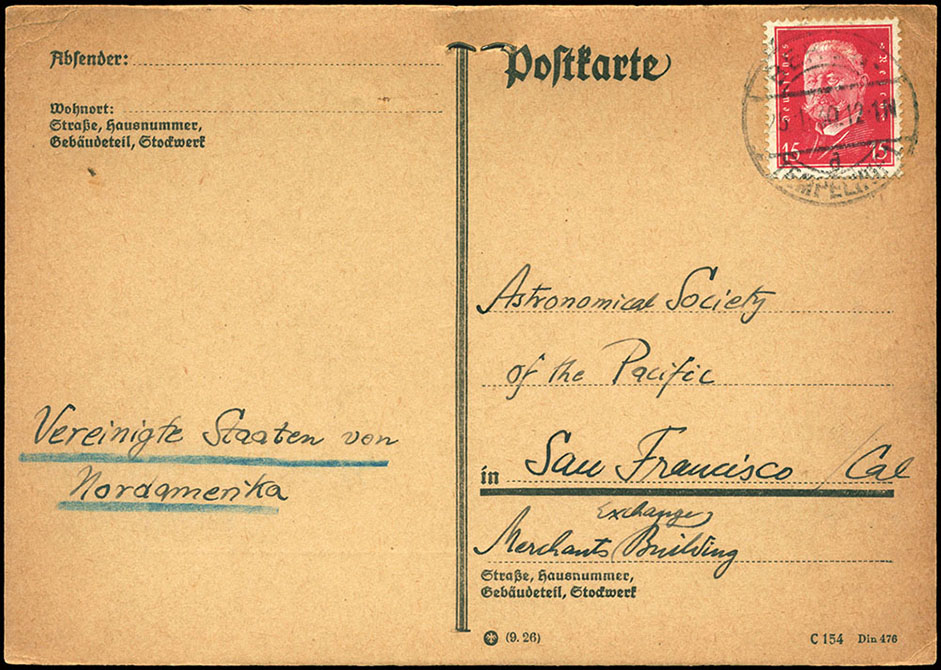 Absender:
Wohnort:
Straße, Hausnummer,
Gebäudeteil, Stockwerk
Vereinigte Staaten von
Nordamerika
Postkarte
15 15
TEMPELHOF
Astronomical Society
of the Pacific
in San Francisco / Cal
Exchange
Merchants Building
Straße, Hausnummer,
Gebäudeteil, Stockwerk
(9. 26)
C 154 Din 476